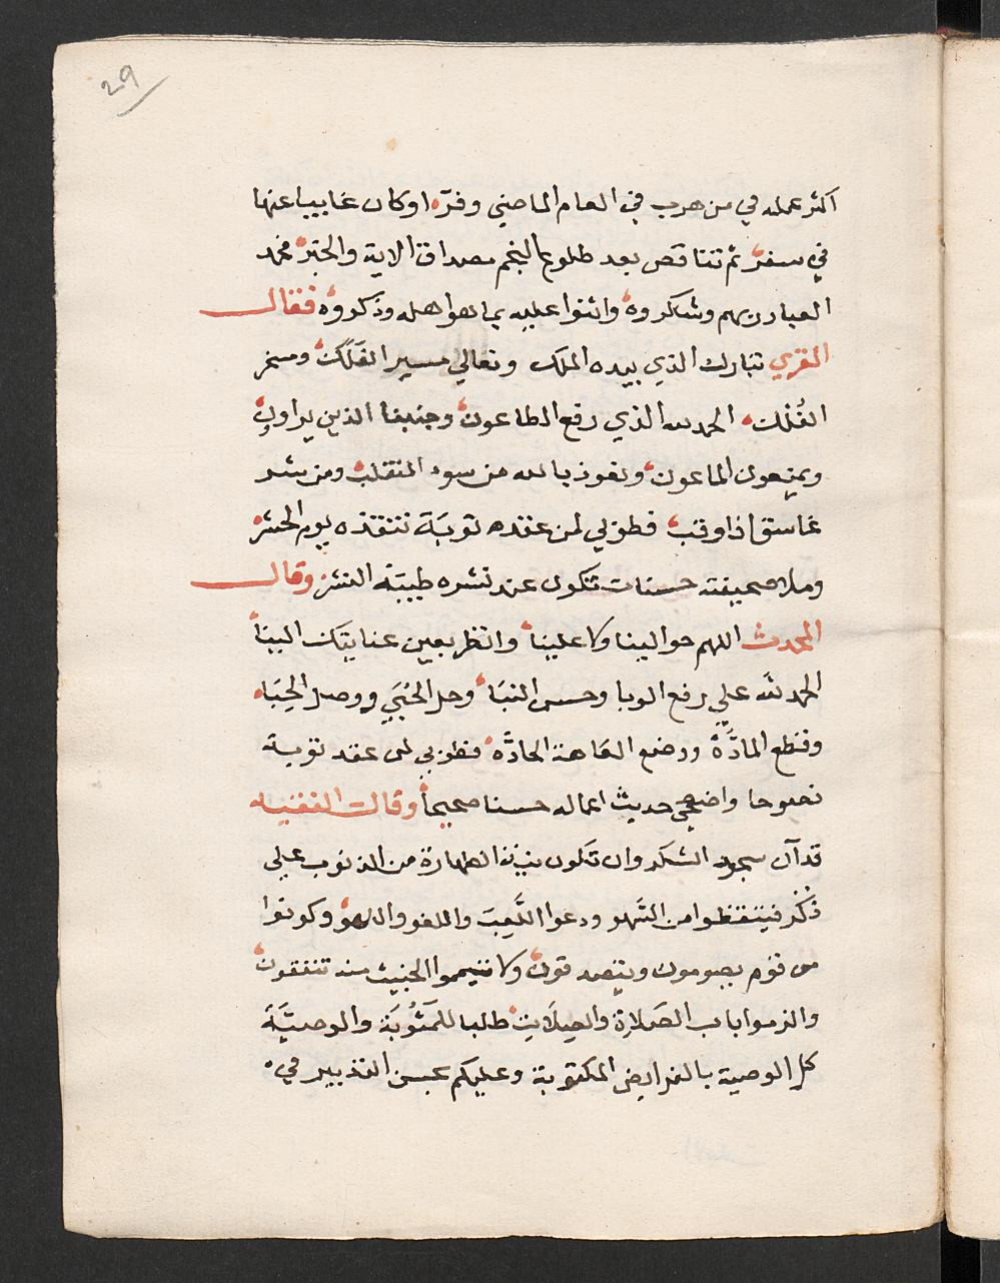 29
اكثر عمله في من هرب في العام الماضي وفرّه او كان غايبا عنها
في سفر ثم تناقص بعد طلوع النجم مصداق الاية والخبر فحمد
العباد ربهم وشكروه واثنوا عليه بما هو اهله وذكروه فقال
المقري تبارك الذي بيده الملك وتعالي مسير الفَلَك ومسخر
الفُلك الحمد لله الذي رفع الطاعون وجنبنا الذين يراون
ويمنعون الماعون ونعوذ بالله من سوء المنقلب ومن شر
غاسق اذا وقب فطوبي لمن عقد توبة تنقذه يوم الحشر
وملا صحيفته حسنات تكون عند نشره طيبة النشر وقال
المحدث اللهم حوالينا ولا علينا وانظر بعين عنايتك الينا
الحمد لله علي رفع الوبا وحسن النبا وحل الحبَي ووصل الحِبَا
وقطع المادَّة ورفع العاهة الحادَّه فطوبي لمن عقد توبة
نصوحا واضحي حديث اعماله حسنا صحيحا وقالت الفقيه
قد آن سجود الشكر وان تكون بنية الطهارة من الذنوب علي
ذُكْر فتيقظوا من السَّهو ودعوا اللَّعِبَ واللغو واللهو وكونوا
من قوم يصومون ويتصدقون ولا تيمموا الخبيث منه تنفقون
والزموا باب الصَلاة والصِلَاتِ طلبا للمَثُوبَة والوصيَّة
كل الوصية بالفرايض المكتوبة وعليكم بحسن التدبير في